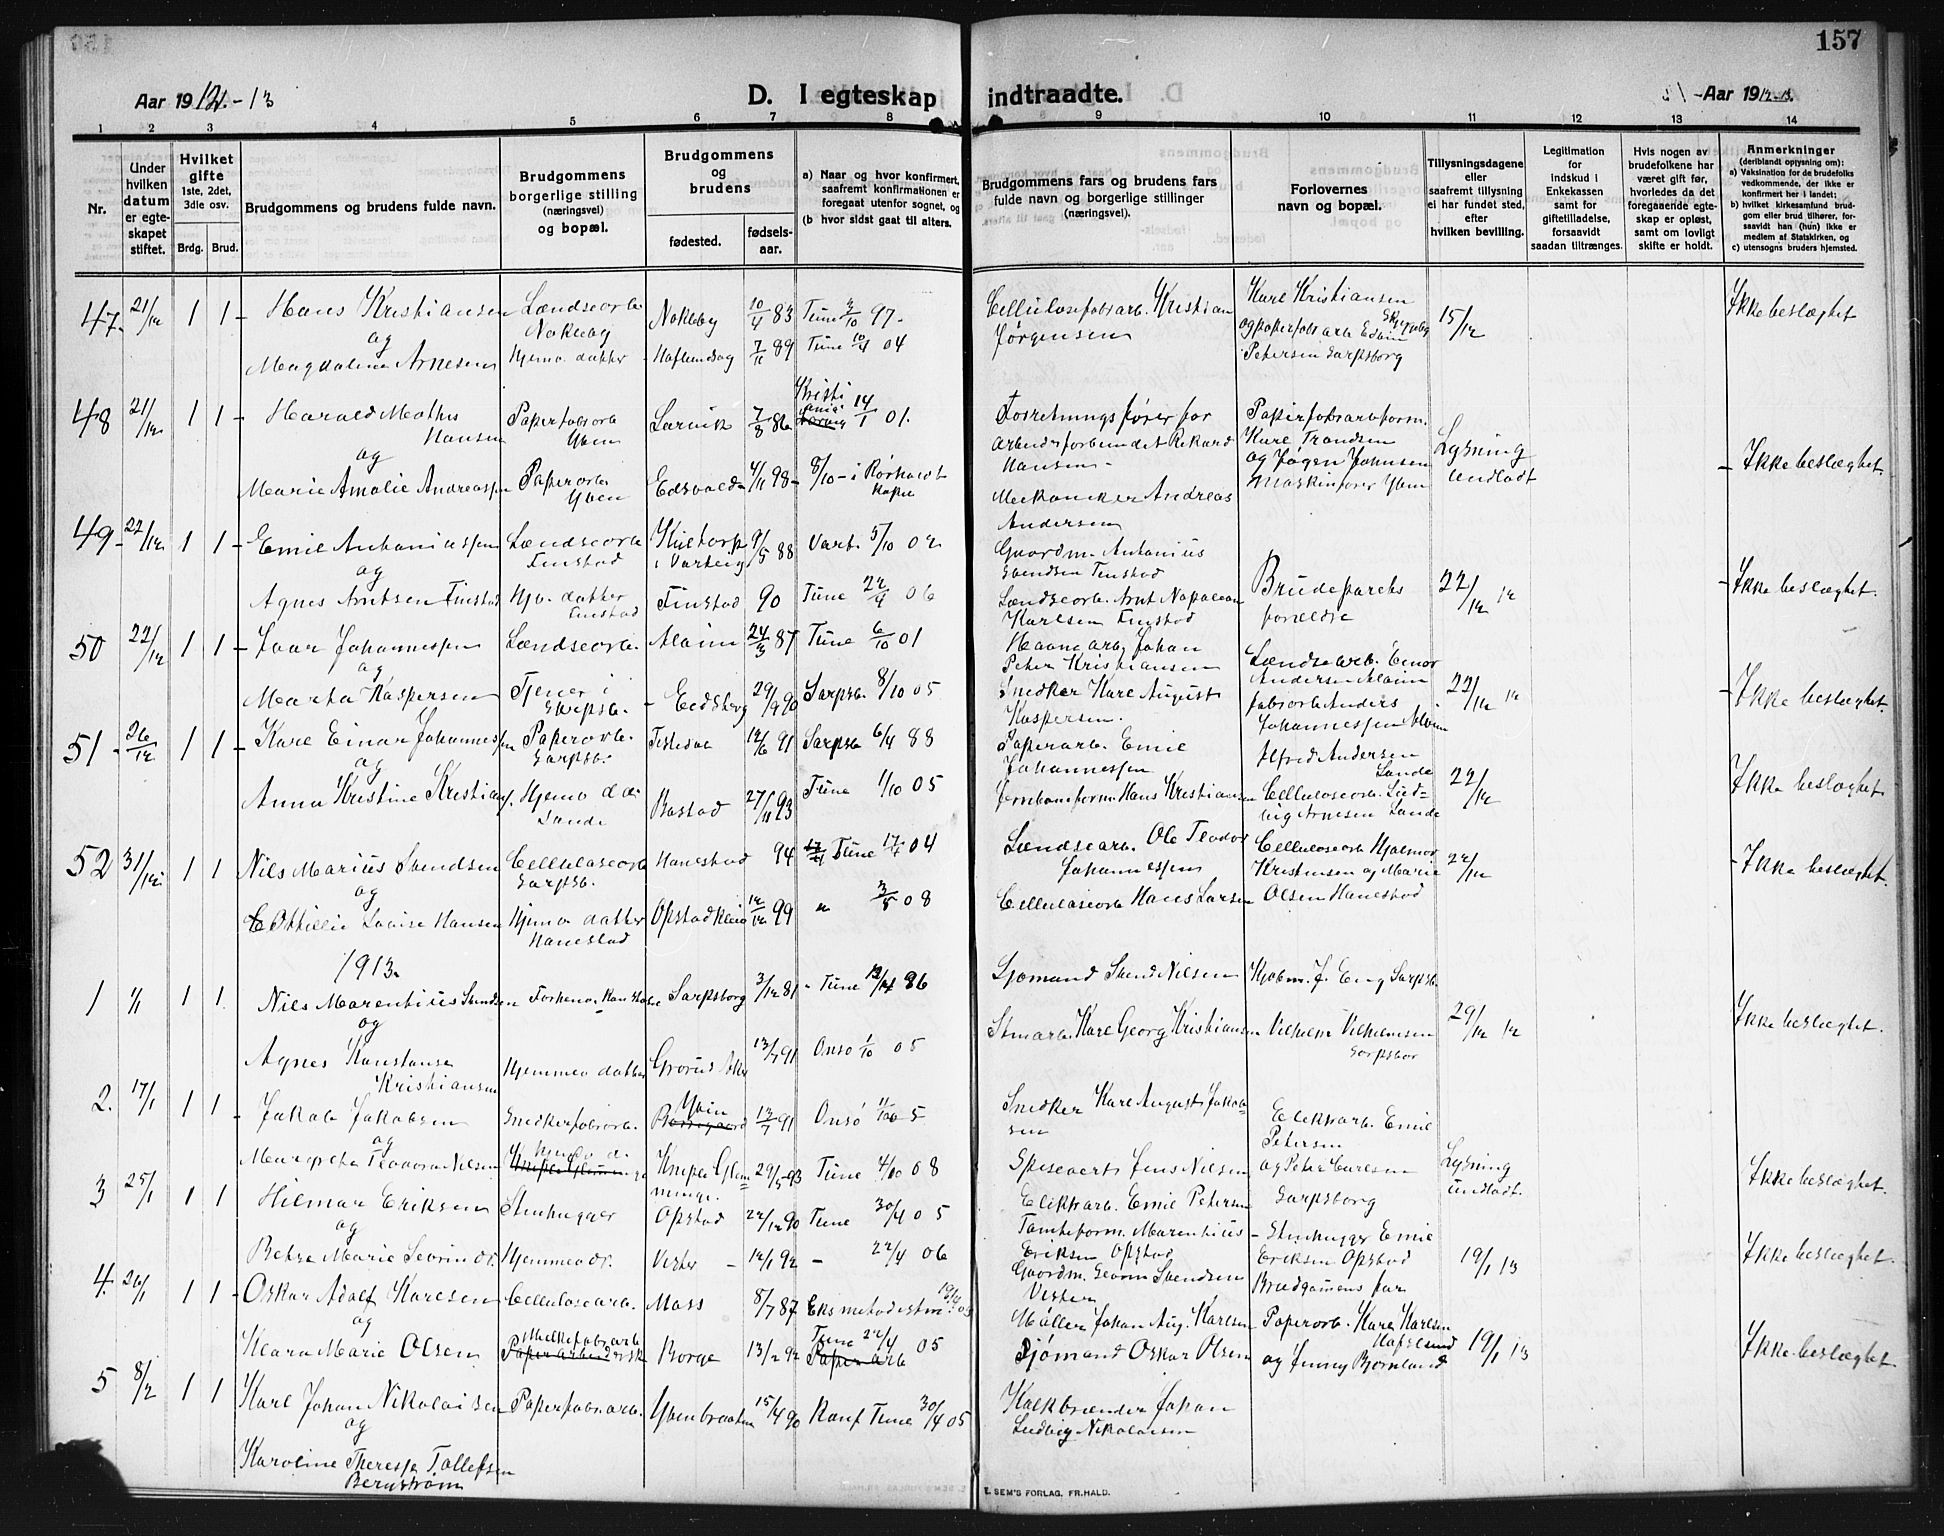 157
Aar 1912-13
D. I egteskap indtraadte.
Aar 1912-13.
1 2 3 4 5 6 7 8 9 10 11 12 13 14
Nr.
Under hvilken datum er egteskapet stiftet.
Hvilket gifte
1ste, 2det, 3dle osv.
Brdg. Brud.
Brudgommens og brudens fulde navn.
Brudgommens borgerlige stilling (næringsvei) og bopæl.
Brudgommens og brudens
fødested.
fødselsaar.
a) Naar og hvor konfirmert, saafremt konfirmationen er foregaat utenfor sognet, og
(b hvor sidst gaat til alters.
Brudgommens fars og brudens fars fulde navn og borgerlige stillinger (næringsvei).
Forlovernes navn og bopæl.
Tillysningsdagene eller saafremt tillysning ei har fundet sted, efter hvilken bevilling.
Legitimation for indskud i Enkekassen samt for giftetilladelse, forsaavidt saadan tiltrænges.
Hvis nogen av brudefolkene har været gift før, hvorledes da det foregaaende egteskap er opløst, samt om lovligt skifte er holdt.
Anmerkninger
(deriblandt oplysning om):
a) Vaksination for de brudefolks vedkommende, der ikke er konfirmert her i landet;
b) hvilket kirkesamfund brudgom eller brud tilhører, forsaavidt han (hun) ikke er medlem af Statskirken, og
c) utensogns bruders hjemsted.
47. 21/12 1 1 – Hans Kristiansen Lændsearb. Nokleby Nokleby 10/4 83 Tune 3/10 97. Cellulosefabarb. Kristian Jørgensen Karl Kristiansen 15/12 Ikke beslægtet
og
Magdalena Arnesen Hjemv. datter Haslundsog 7/11 89 Tune 10/4 04 Petersen Sarpsborg
48 21/12 1 1 – Harald Mathis Hansen Papirfabarb Yven Larvik 7/8 86 Kristiania 14/1 01. Forretningsfører for arbeiderforbundet Rikard Hansen – Papirfabarbform. Karl Trandsen Lysning undladt – Ikke beslægtet
og
Marie Amalie Andreassen Papirarb. Yven Edsvold 4/11 98 – 8/10 – i Mekaniker Andreas Andersen og Jørgen Johnsen Maskinfører Yven
49 – 22/12 1 1 – Emil Antoniussen Lændsearb. Tinstad i Varteig 9/5 88 Vart. 5/10 02 Gaardm. Antonius Svendsen Tinstad Brudeparets forældre 22/12 12 – Ikke beslægtet.
og
Agnes Arntsen Tinstad Hjv. datter Tinstad Tinstad 90 Tune 22/4 06 Lændsearb. Arnt Napoleon Karlsen Tinstad
50 22/12 1 1 – Ivar Johannessen Lændsearb. Alvim 24/3 87 Tune 6/10 01 Havnearb. Johan Peter Kristiansen Lændsearb. Einar Andersen Alvim 22/12 12 – Ikke beslægtet.
og
Marta Kaspersen Tjener i Sarpsb. – Eidsberg 29/9 90 Sarpsb. 8/10 05 Snedker Karl August Kaspersen. fabarb Anders Johannessen Alvim
51 – 26/12 1 1 – Karl Einar Johannessen Papirarb. Sarpsb. Tistedal 12/6 91 Sarpsb 6/4 88 Papirarb. Emil Johannessen Alfred Andersen Sande 22/12 Ikke beslægtet
og
Anna Kristine Kristians. Hjemv. d. Sande Rostad 27/11 93 Tune 1/10 05 Jernbaneform. Hans Kristiansen Cellulosearb. Ludvig Arnesen Sande
52 31/12 1 1 Nils Marius Svendsen Cellulosearb Sarpsb. Hanestad 94 Tune 17/4 04 Lændsearb. Ole Teodor Johannessen Cellulosearb Hjalmar Kristensen og Marie 22/12 – Ikke beslægtet.
og
Ottilie Lovise Hansen Hjemv. datter Hanestad Opstad 12/12 99 " 3/5 08 Cellulosearb Hans Larsen Olsen Hanestad
1913.
1 1/1 1 1 Nils Marentius Svendsen Sarpsborg 3/12 81 – Tune 86 Sjømand Svend Nilsen Kjøbm. J. Eng Sarpsb. 29/12 12 Ikke beslægtet.
og
Agnes Konstanse Kristiansen Hjemmev. datter Grorud Aker 13/7 91 Onsø 1/10 05 Karl Georg Kristiansen Vilhelm Vilhelmsen
2. 17/1 1 1 – Jakob Jakobsen Snedkerfabarb. Yvin 13/7 91 Onsø 05 Snedker Karl August Jakobsen Elektrarb. Emil Petersen Lysning undladt. Ikke beslægtet.
og
Margreta Teodora Nilsen Hjemv. d. Glemminge 29/5 93 Tune 4/10 08 Spisevert Jens Nilsen og Peter Carlsen Sarpsborg
3 25/1 1 1 Hilmar Eriksen Stenhugger Opstad 22/12 90 Tune 30/4 05 Elektrarb. Emil Petersen Tomteform. Marentius Eriksen Opstad – Stenhugger Emil Eriksen Opstad 19/1 13 Ikke beslægtet.
og
Betsa Marie Sevrindr. Hjemmev. dr. Vister – 12/1 92 – 22/4 06 Gaardm. Sevrin Svendsen Vister Brudgommens far
4. 26/1 1 1 – Oskar Adolf Karlsen Cellulosearb. Moss 8/7 87 Eks metodistm. Møller Johan Aug. Karlsen Papirarb. Karl Karlsen Hafslund 19/1 13 Ikke beslægtet
og
Klara Marie Olsen Borge 13/2 92 Tune 22/4 05 Sjømand Oskar Olsen og Jenny Bjørnland
5 8/2 1 1 Karl Johan Nikolaisen Papirfabarb. Yvenbraaten 15/4 90 Konf Tune 30/4 05 Kalkbrænder Johan Ludvig Nikolaisen
og
Karoline Theresia Tollefsen Bernstrøm
E. SEM'S FORLAG, FR.HALD.